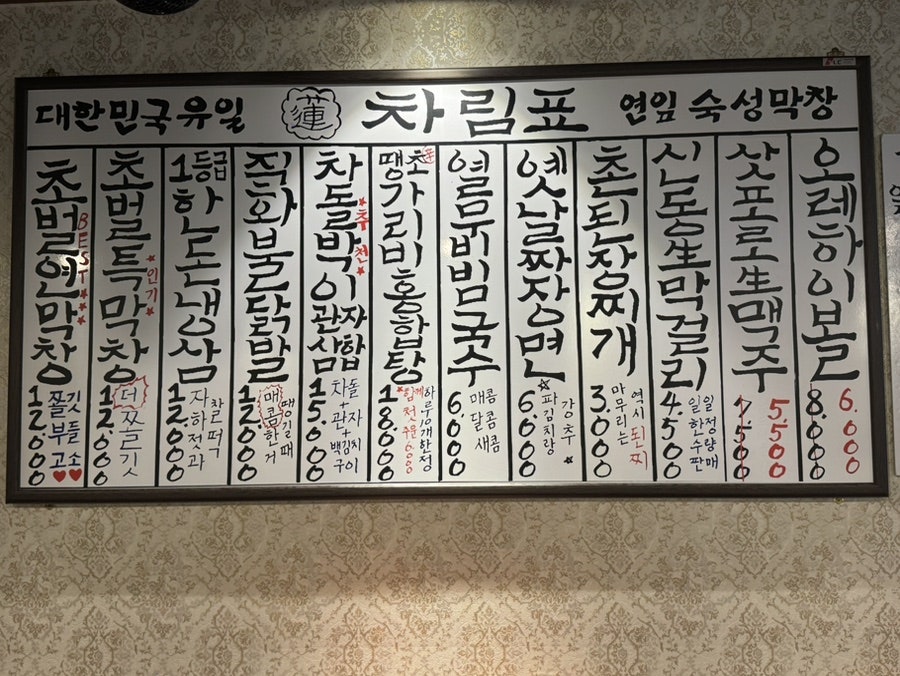 대한민국유일
蓮
차림표
연잎 숙성막창
초벌연막창
BEST
12.000
쫄깃
부들
고소
초벌특막창
인기
12.000
더
쫄깃
1등급
한돈냉삼
12.000
자하젓과
찰떡
직화불닭발
12.000
매콤한거
땡길때
차돌박이
관자삼합
추천
15.000
땡초가리비홍합탕
18.000
하루10개한정
열무비빔국수
6.000
매콤
달콤
새콤
옛날짜장면
6.000
파김치랑
강추
촌된장찌개
3.000
마무리는
역시된찌
신동生막걸리
4.500
일일
한정
수량
판매
삿포로生맥주
7.500
5.500
오레하이볼
8.000
6.000